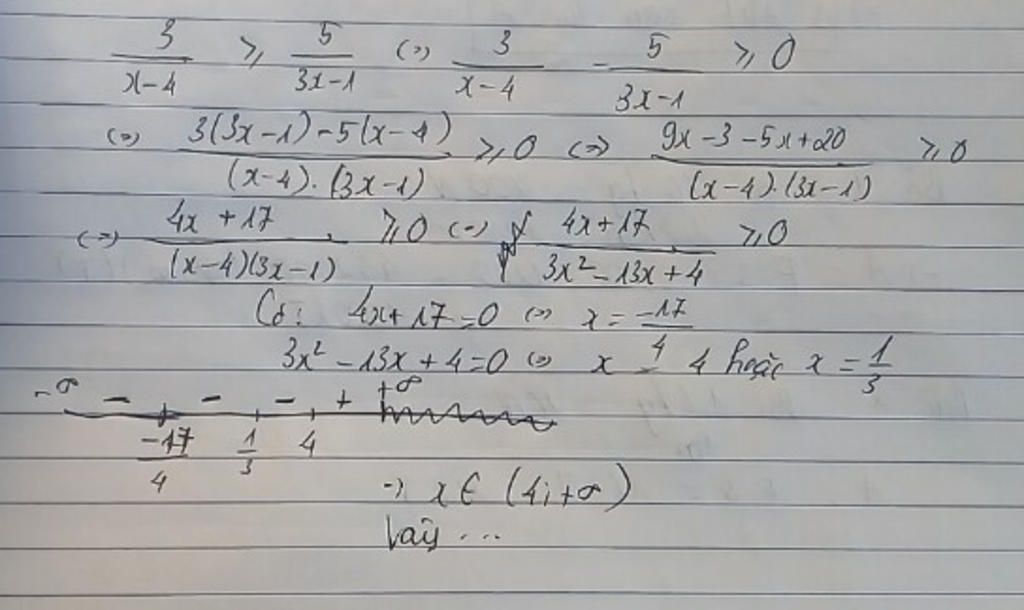 3/(x-4) ⩾ 5/(3x-1) (=) 3/(x-4) - 5/(3x-1) ⩾ 0
(=) (3(3x-1)-5(x-4))/((x-4).(3x-1)) ⩾ 0 (=) (9x-3-5x+20)/((x-4).(3x-1)) ⩾ 0
(=) (4x+17)/((x-4)(3x-1)) ⩾ 0 (=) (4x+17)/(3x²-13x+4) ⩾ 0
Có: 4x+17=0 (=) x = -17/4
3x²-13x+4=0 (=) x = 4 hoặc x = 1/3
-∞ - - - + +∞
-17/4 1/3 4
=) x ∈ (4;+∞)
Vậy ...